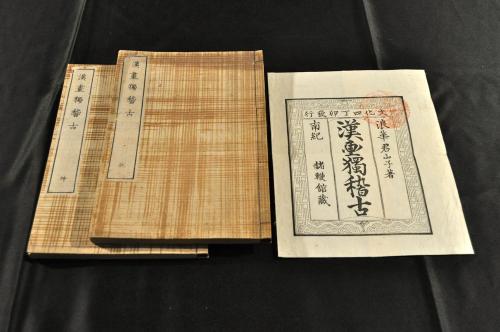 漢畫獨稽古
坤
漢畫獨稽古
文化四丁卯發行
浪華 君山子著
漢画獨稽古
南紀 赭鞭館藏